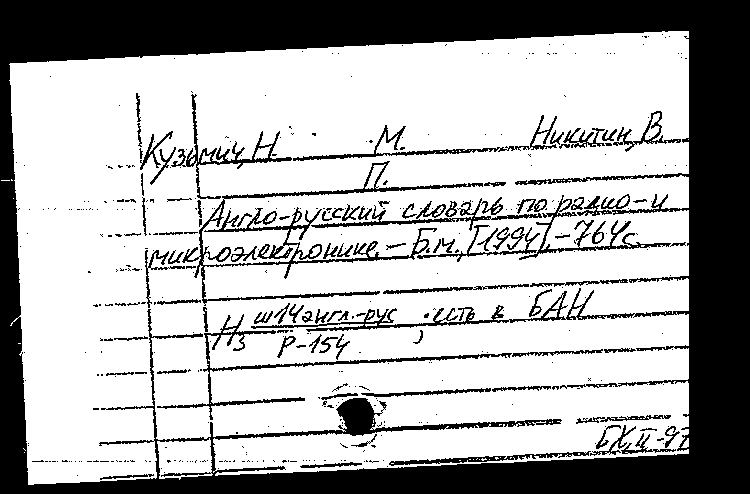 Кузьмич, Н. М. Никитин, В.
П.
Англо-русский словарь по радио- и
микроэлектронике. – Б.м., [1994]. – 764с.
Н3 ш14англ.-рус
Р-154 ; есть в БАН
БХ, II-97